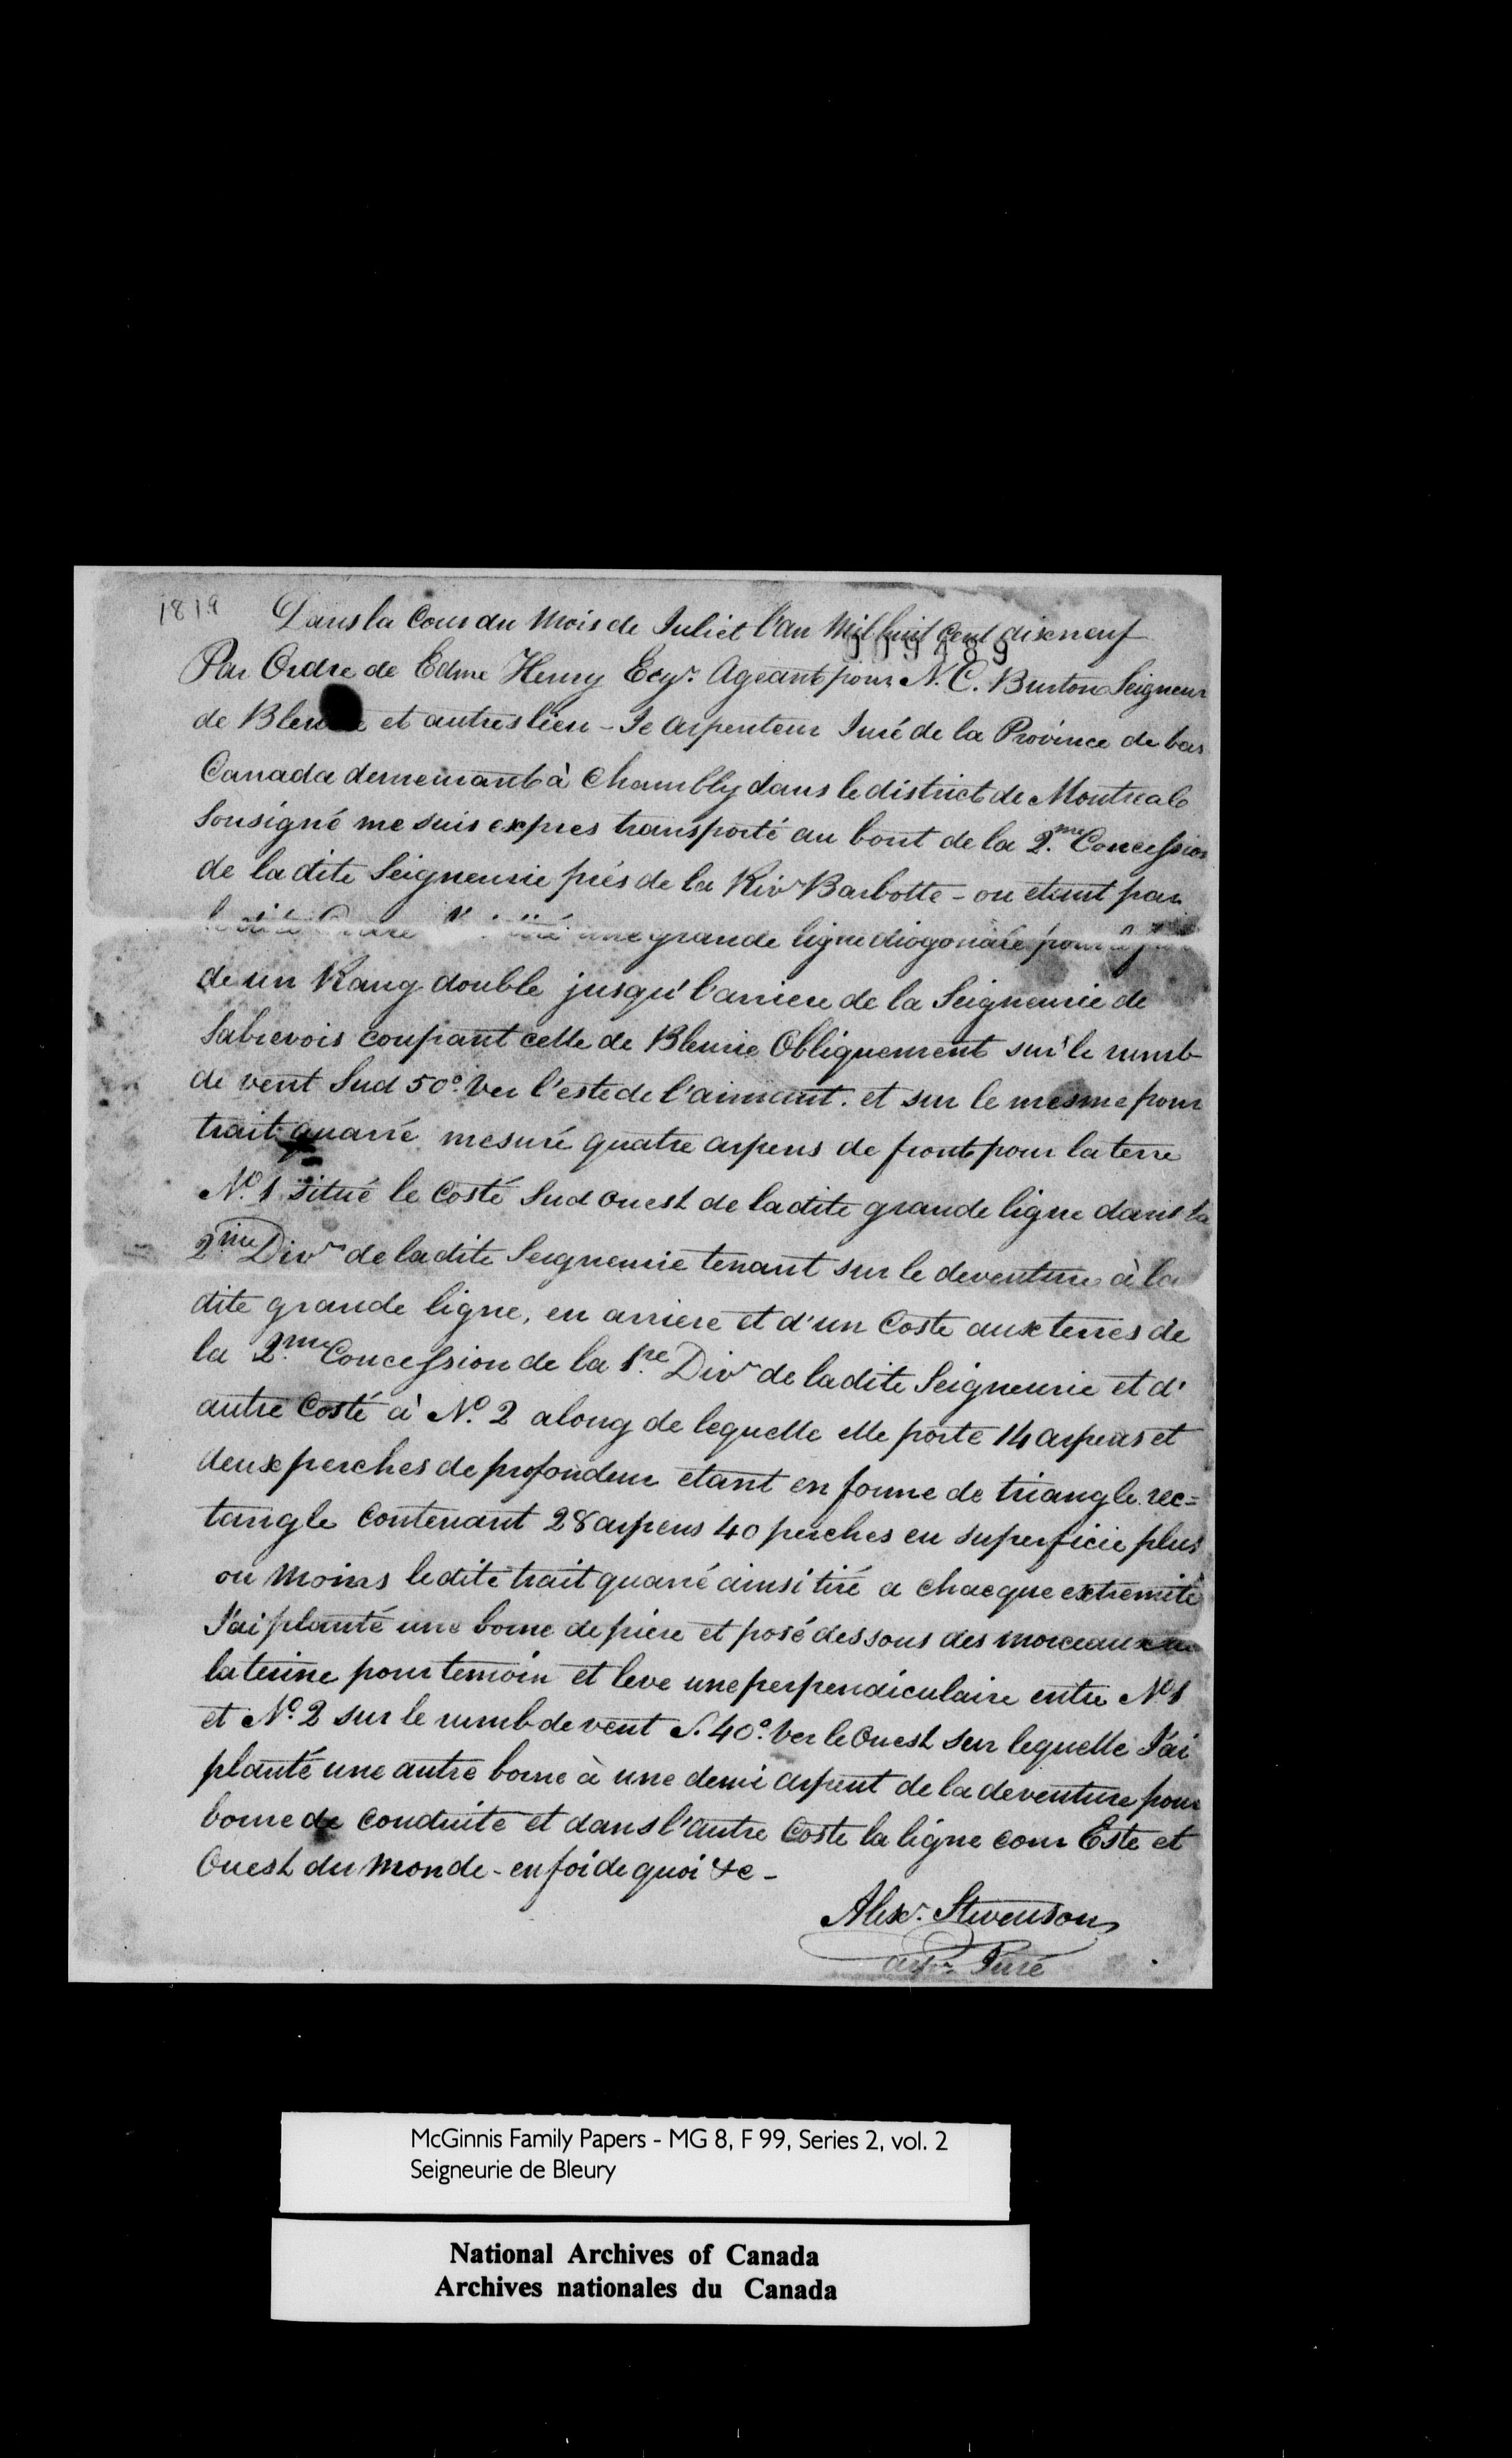 1819
Dans la Cour du Mois de Juliet l'an Mil huit Cent dixneuf
009489
Par Ordre de Edme Henry Ecyr. Ageant pour N. C. Burton Seigneur
de Bleurie et autres lieu - Je Arpenteur Juré de la Province de bas
Canada demeurant à Chambly dans le district de Montreal
Sousigné me suis expres transporté au bout de la 2.me Concession
de la dite Seigneurie prés de la Rivr Barbotte - ou etant par
une grande ligne diogonale pour
de un Rang double jusqu' l'arriere de la Seigneurie de
Sabrevois coupant celle de Bleurie Obliquement sur le rumb
de vent Sud 50° Ver l'este de l'aimant. et sur le mesme pour
trait quarré mesuré quatre arpens de front pour la terre
No. 1 situé le Costé Sud Ouest de la dite grande ligne dans la
2me Divn de la dite Seigneurie tenant sur le deventure à la
dite grande ligne, en arriere et d'un Coste aux terres de
la 2.me Concession de la 1.re Divn de la dite Seigneurie et d'
autre Costé à No. 2 along de lequelle elle porte 14 arpens et
deux perches de profondeur etant en forme de triangle rec=
tangle Contenant 28 arpens 40 perches en superficie plus
ou Moins ledite trait quarré ainsi tiré a chacque extremité
J'ai planté une borne de piere et posé dessous des morceaux de
laterine pour temoin et leve une perpendiculaire entre No 1
et No. 2 sur le rumb de vent S. 40° Ver le Ouest sur lequelle J'ai
planté une autre borne à une demi arpent de la deventure pour
borne de Conduite et dans l'autre Coste la ligne cour Este et
Ouest du Monde - en foi de quoi &c -
Alexr. Stevenson
arpr Juré
McGinnis Family Papers - MG 8, F 99, Series 2, vol. 2
Seigneurie de Bleury
National Archives of Canada
Archives nationales du Canada